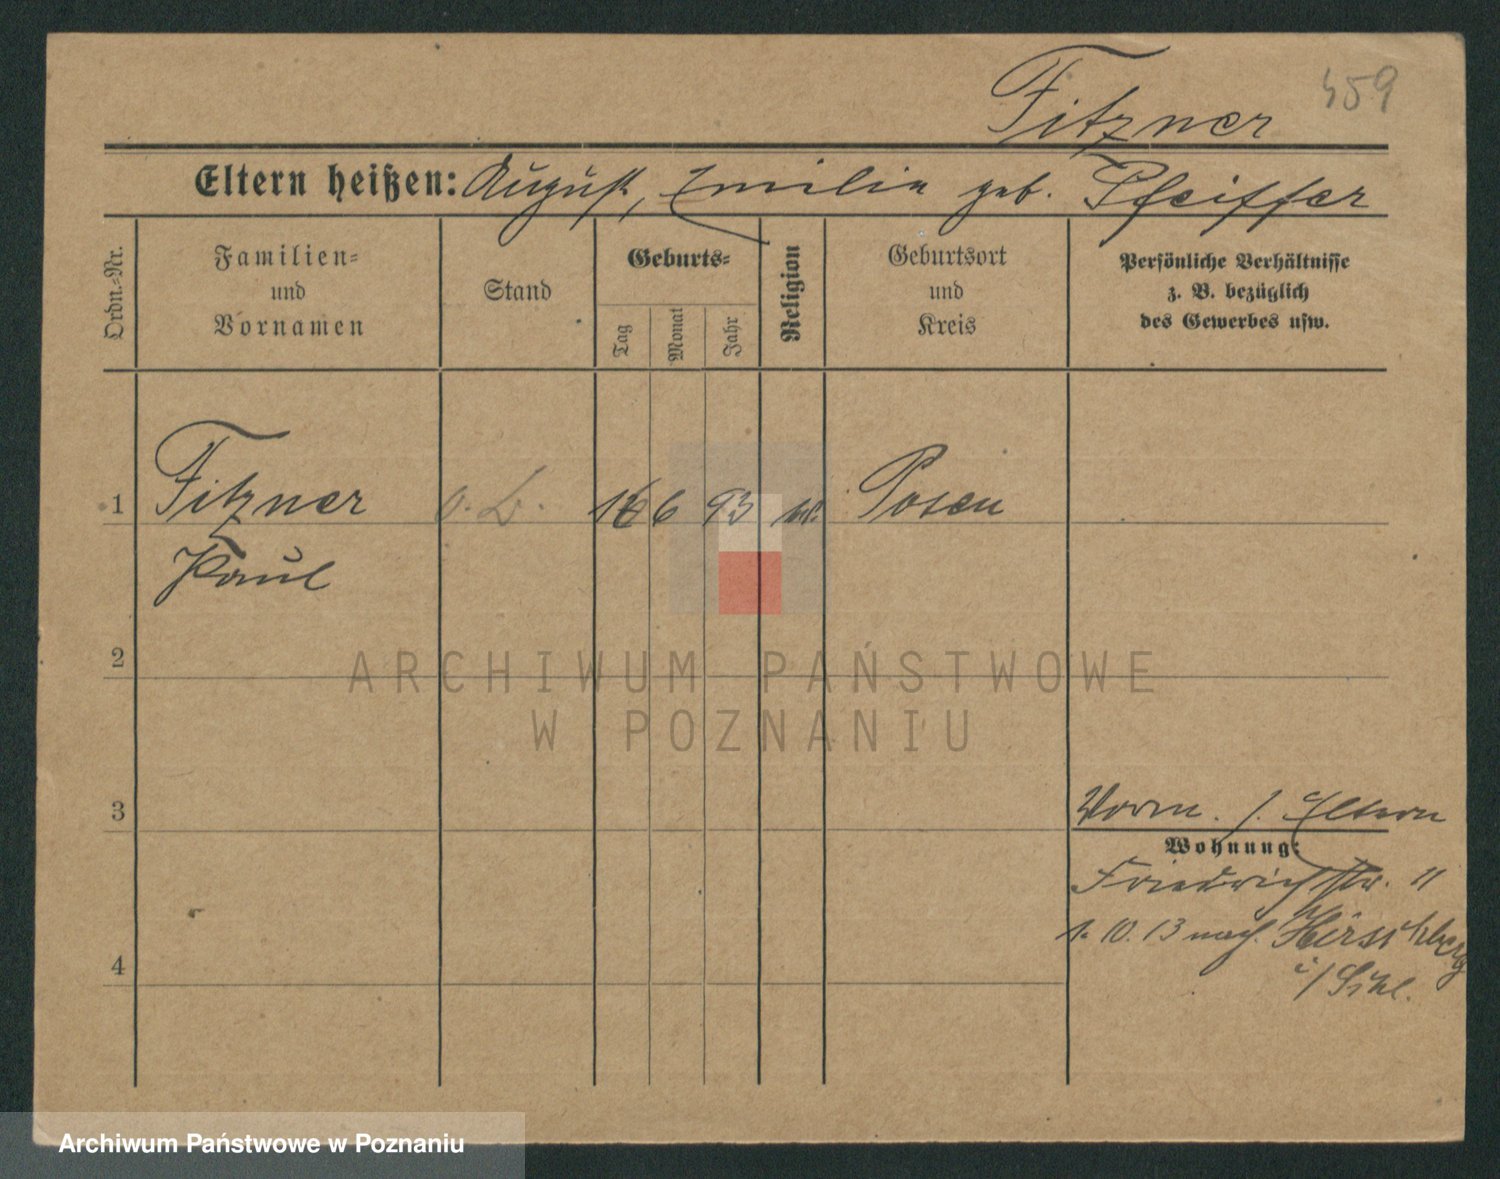 Fitzner 459
Eltern heißen: August, Emilie geb. Pfeiffer
Ordn.-Nr.
Familien-
und
Vornamen
Stand
Geburts-
Tag
Monat
Jahr
Religion
Geburtsort
und
Kreis
Persönliche Verhältnisse
z. B. bezüglich
des Gewerbes usw.
1 Fitzner 16 6 93 Posen
Paul
2
ARCHIWUM PAŃSTWOWE
W POZNANIU
3
Vorm. s. Eltern
Wohnung:
Friedrichstr. 11
1. 10. 13 nach Hirschberg
i/Schl.
4
Archiwum Państwowe w Poznaniu